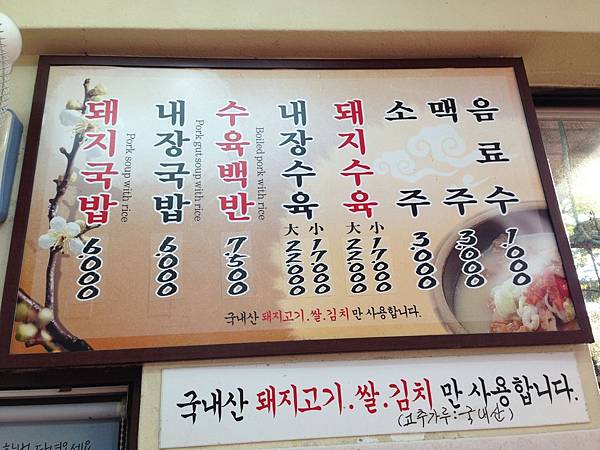 돼지국밥
Pork soup with rice
6000
내장국밥
Pork gut soup with rice
6000
수육백반
Boiled pork with rice
7500
내장수육
大 22000
小 17000
돼지수육
大 22000
小 17000
소주
3000
맥주
3000
음료수
1000
국내산 돼지고기.쌀.김치 만 사용합니다.
국내산 돼지고기.쌀.김치 만 사용합니다.
(고추가루:국내산)